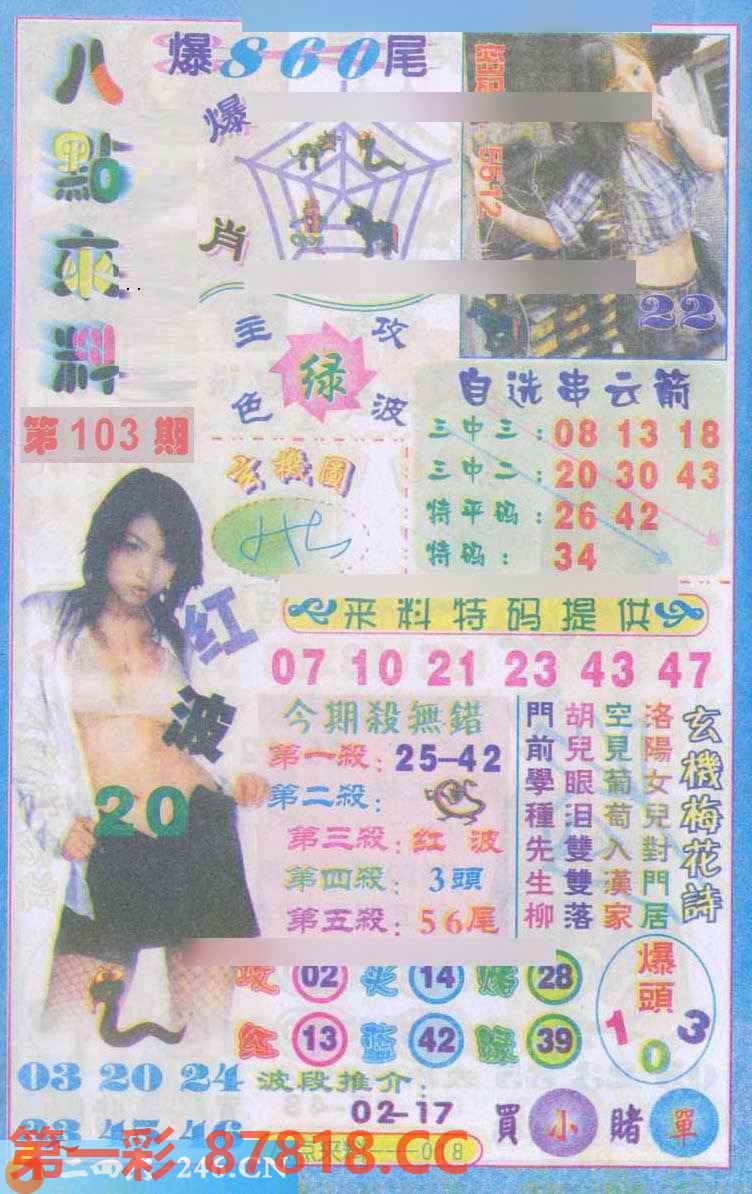 八點來料
第103期
爆860尾
爆
肖
22
主攻
绿
色波
自选串云箭
三中三：08 13 18
三中二：20 30 43
特平码：26 42
特码：34
玄機圖
红波
20
来料特码提供
07 10 21 23 43 47
今期殺無錯
第一殺：25-42
第二殺：
第三殺：红波
第四殺：3頭
第五殺：56尾
玄機梅花詩
洛陽女兒對門居
空見葡萄入漢家
胡兒眼泪雙雙落
門前學種先生柳
02 14 28
红 13 蓝 42 绿 39
爆頭
1 0 3
03 20 24
波段推介：
02-17
買小賭單
第一彩 87818.CC
246.CN